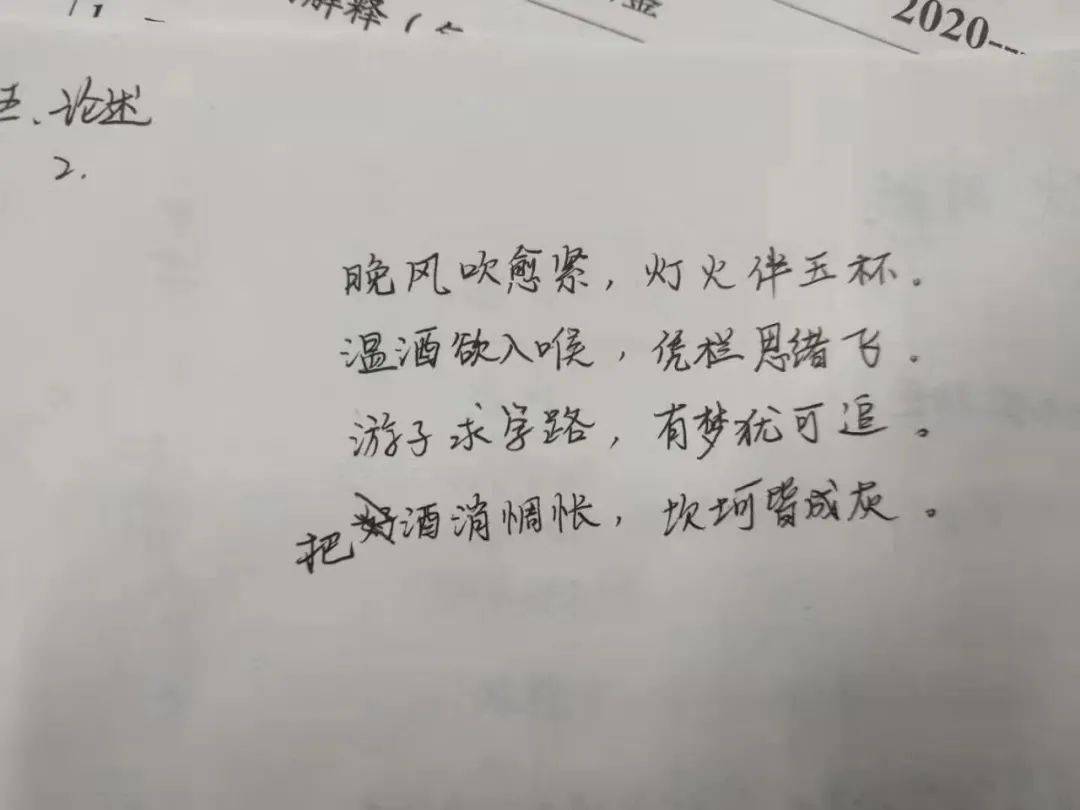 解释（
2020---
五、论述
2.
晚风吹愈紧，灯火伴玉杯。
温酒欲入喉，凭栏思绪飞。
游子求学路，有梦犹可追。
把酒消惆怅，坎坷皆成灰。